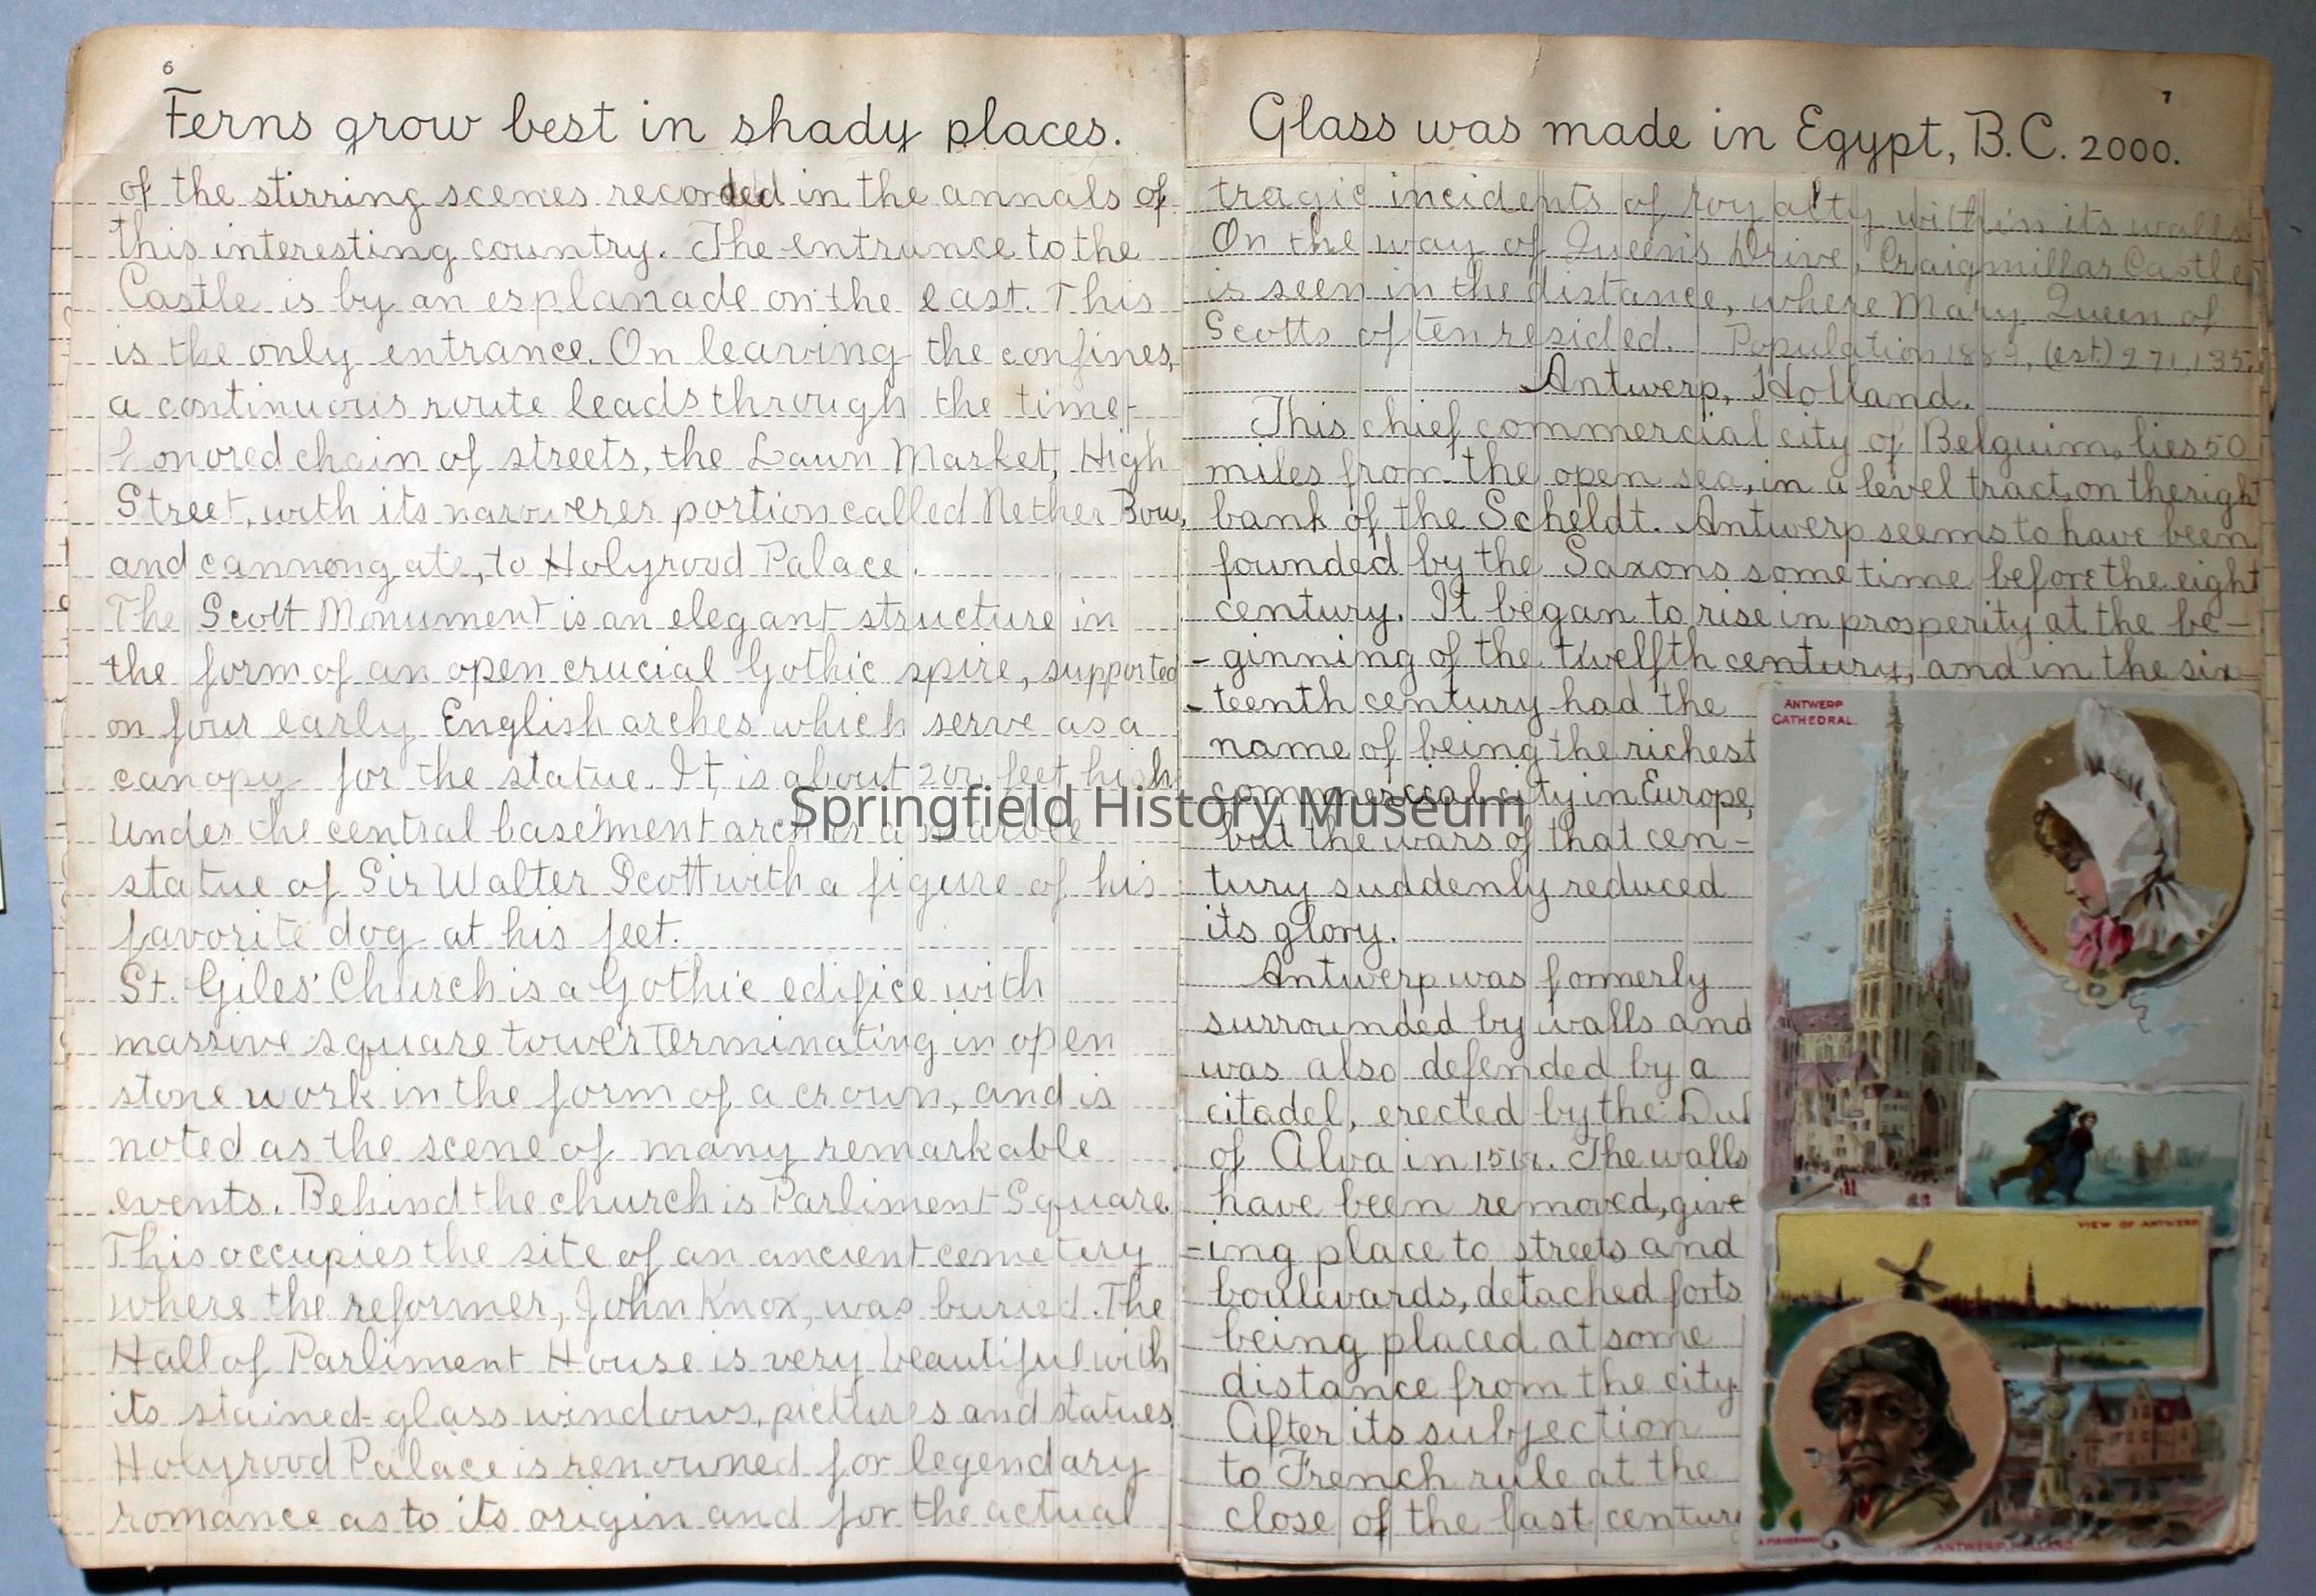 6
Ferns grow best in shady places.
of the stirring scenes recorded in the annals of
this interesting country. The entrance to the
Castle is by an esplanade on the east. This
is the only entrance. On leaving the confines,
a continuous route leads through the time-
honored chain of streets, the Lawn Market, High
Street, with its narowerer portion called Nether Bow,
and cannongate, to Holyrood Palace.
The Scott Monument is an elegant structure in
the form of an open crucial Gothic spire, supported
on four early English arches which serve as a
canopy for the statue. It is about 200 feet high
Under the central basement arch is a marble
statue of Sir Walter Scott with a figure of his
favorite dog at his feet.
St. Giles' Church is a Gothic edifice with
massive square tower terminating in open
stone work in the form of a crown, and is
noted as the scene of many remarkable
events. Behind the church is Parliment Square.
This occupies the site of an ancient cemetery
where the reformer, John Knox, was buried. The
Hall of Parliment House is very beautiful with
its stained-glass windows, pictures and statues.
Holyrood Palace is renowned for legendary
romance as to its origin and for the actual
7
Glass was made in Egypt, B.C. 2000.
tragic incidents of royalty within its walls
On the way of Queen's Drive, Craigmillar Castle,
is seen in the distance, where Mary Queen of
Scotts often resided. Population 1889, (est) 271,135.
Antwerp, Holland.
This chief commercial city of Belguim, lies 50
miles from the open sea, in a level tract, on the right
bank of the Scheldt. Antwerp seems to have been
founded by the Saxons some time before the eight
century. It began to rise in prosperity at the be-
-ginning of the twelfth century, and in the six-
-teenth century had the
name of being the richest
commercial city in Europe,
but the wars of that cen-
tury suddenly reduced
its glory.
Antwerp was formerly
surrounded by walls and
was also defended by a
citadel, erected by the Duk
of Alva in 1568. The walls
have been removed, give
-ing place to streets and
boulevards, detached forts
being placed at some
distance from the city.
After its subjection
to French rule at the
close of the last century
ANTWERP
CATHEDRAL.
VIEW OF ANTWERP
A FISHERMAN
ANTWERP, HOLLAND.
Springfield History Museum